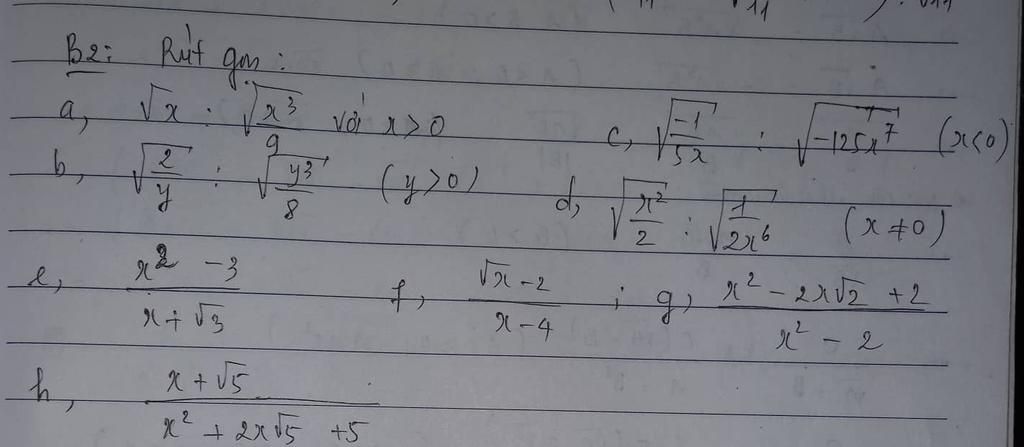 B2: Rút gọn:
a, √x : √(x³/9) với x > 0
c, √(-1/5x) : √(-125x⁷) (x<0)
b, √(2/y) : √(y³/8) (y > 0)
d, √(x²/2) : √(1/2x⁶) (x ≠ 0)
e, (x² - 3)/(x + √3)
f, (√x - 2)/(x - 4) ; g, (x² - 2x√2 + 2)/(x² - 2)
h, (x + √5)/(x² + 2x√5 + 5)